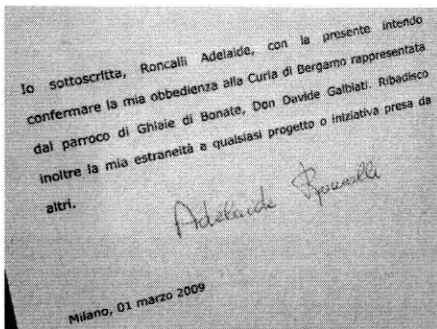 Io sottoscritta, Roncalli Adelaide, con la presente intendo
confermare la mia obbedienza alla Curia di Bergamo rappresentata
dal parroco di Ghiaie di Bonate, Don Davide Galbiati. Ribadisco
inoltre la mia estraneità a qualsiasi progetto o iniziativa presa da
altri.
Adelaide Roncalli
Milano, 01 marzo 2009